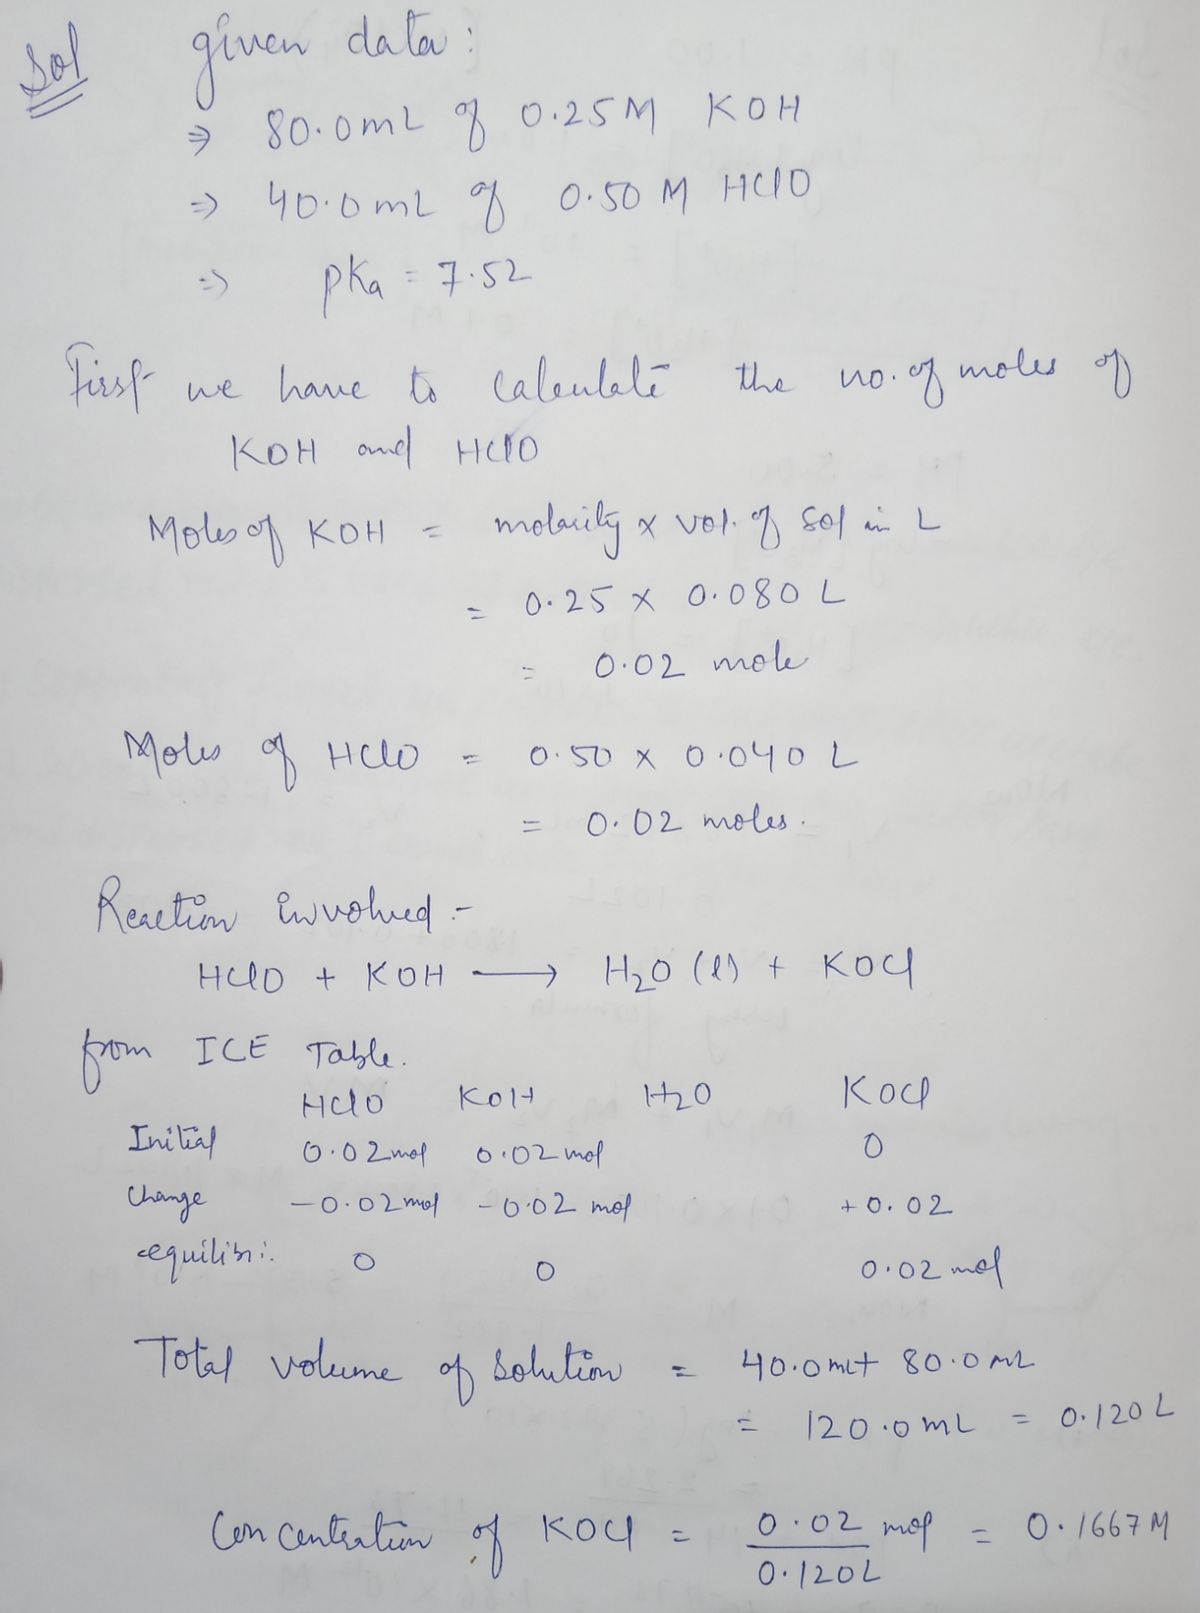 Sol given data:
⇒ 80.0mL of 0.25M KOH
⇒ 40.0mL of 0.50 M HClO
⇒ pKa = 7.52
First we have to calculate the no. of moles of
KOH and HClO
Moles of KOH = molarity x vol. of sol in L
= 0.25 x 0.080 L
= 0.02 mole
Moles of HClO = 0.50 x 0.040 L
= 0.02 moles.
Reaction involved :-
HClO + KOH ⟶ H₂O (l) + KOCl
from ICE Table.
HClO KOH H₂O KOCl
Initial 0.02mol 0.02 mol 0
Change -0.02mol -0.02 mol +0.02
equilibri:. 0 0 0.02 mol
Total volume of solution = 40.0mL+ 80.0mL
= 120.0mL = 0.120L
Concentration of KOCl = 0.02 mol / 0.120L = 0.1667M